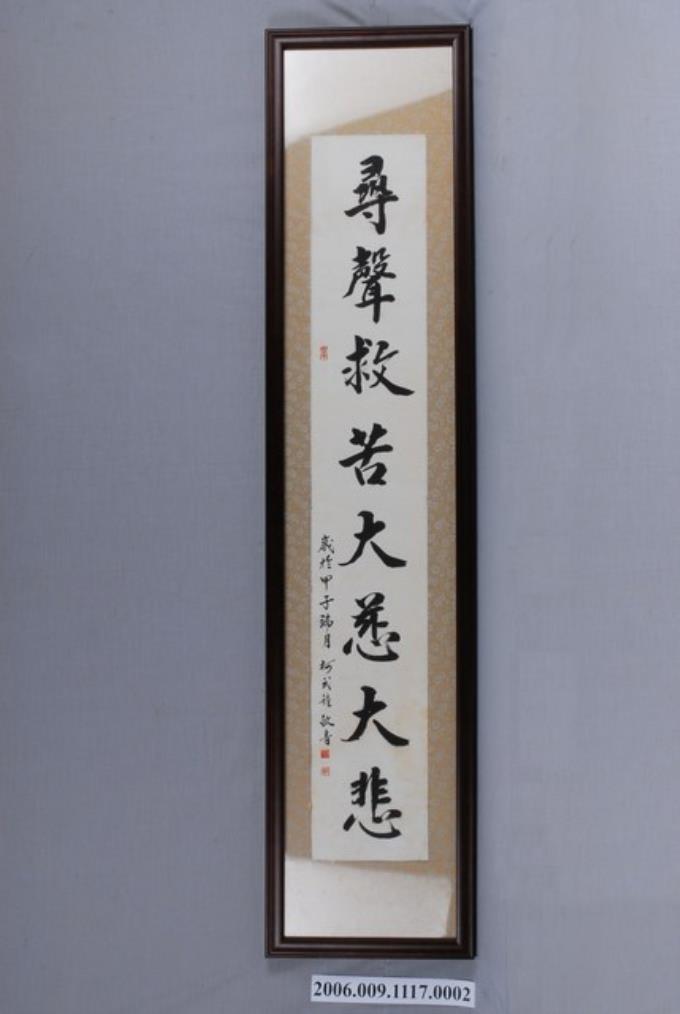 尋聲救苦大慈大悲
歲於甲子端月 柯 敬書
2006.009.1117.0002